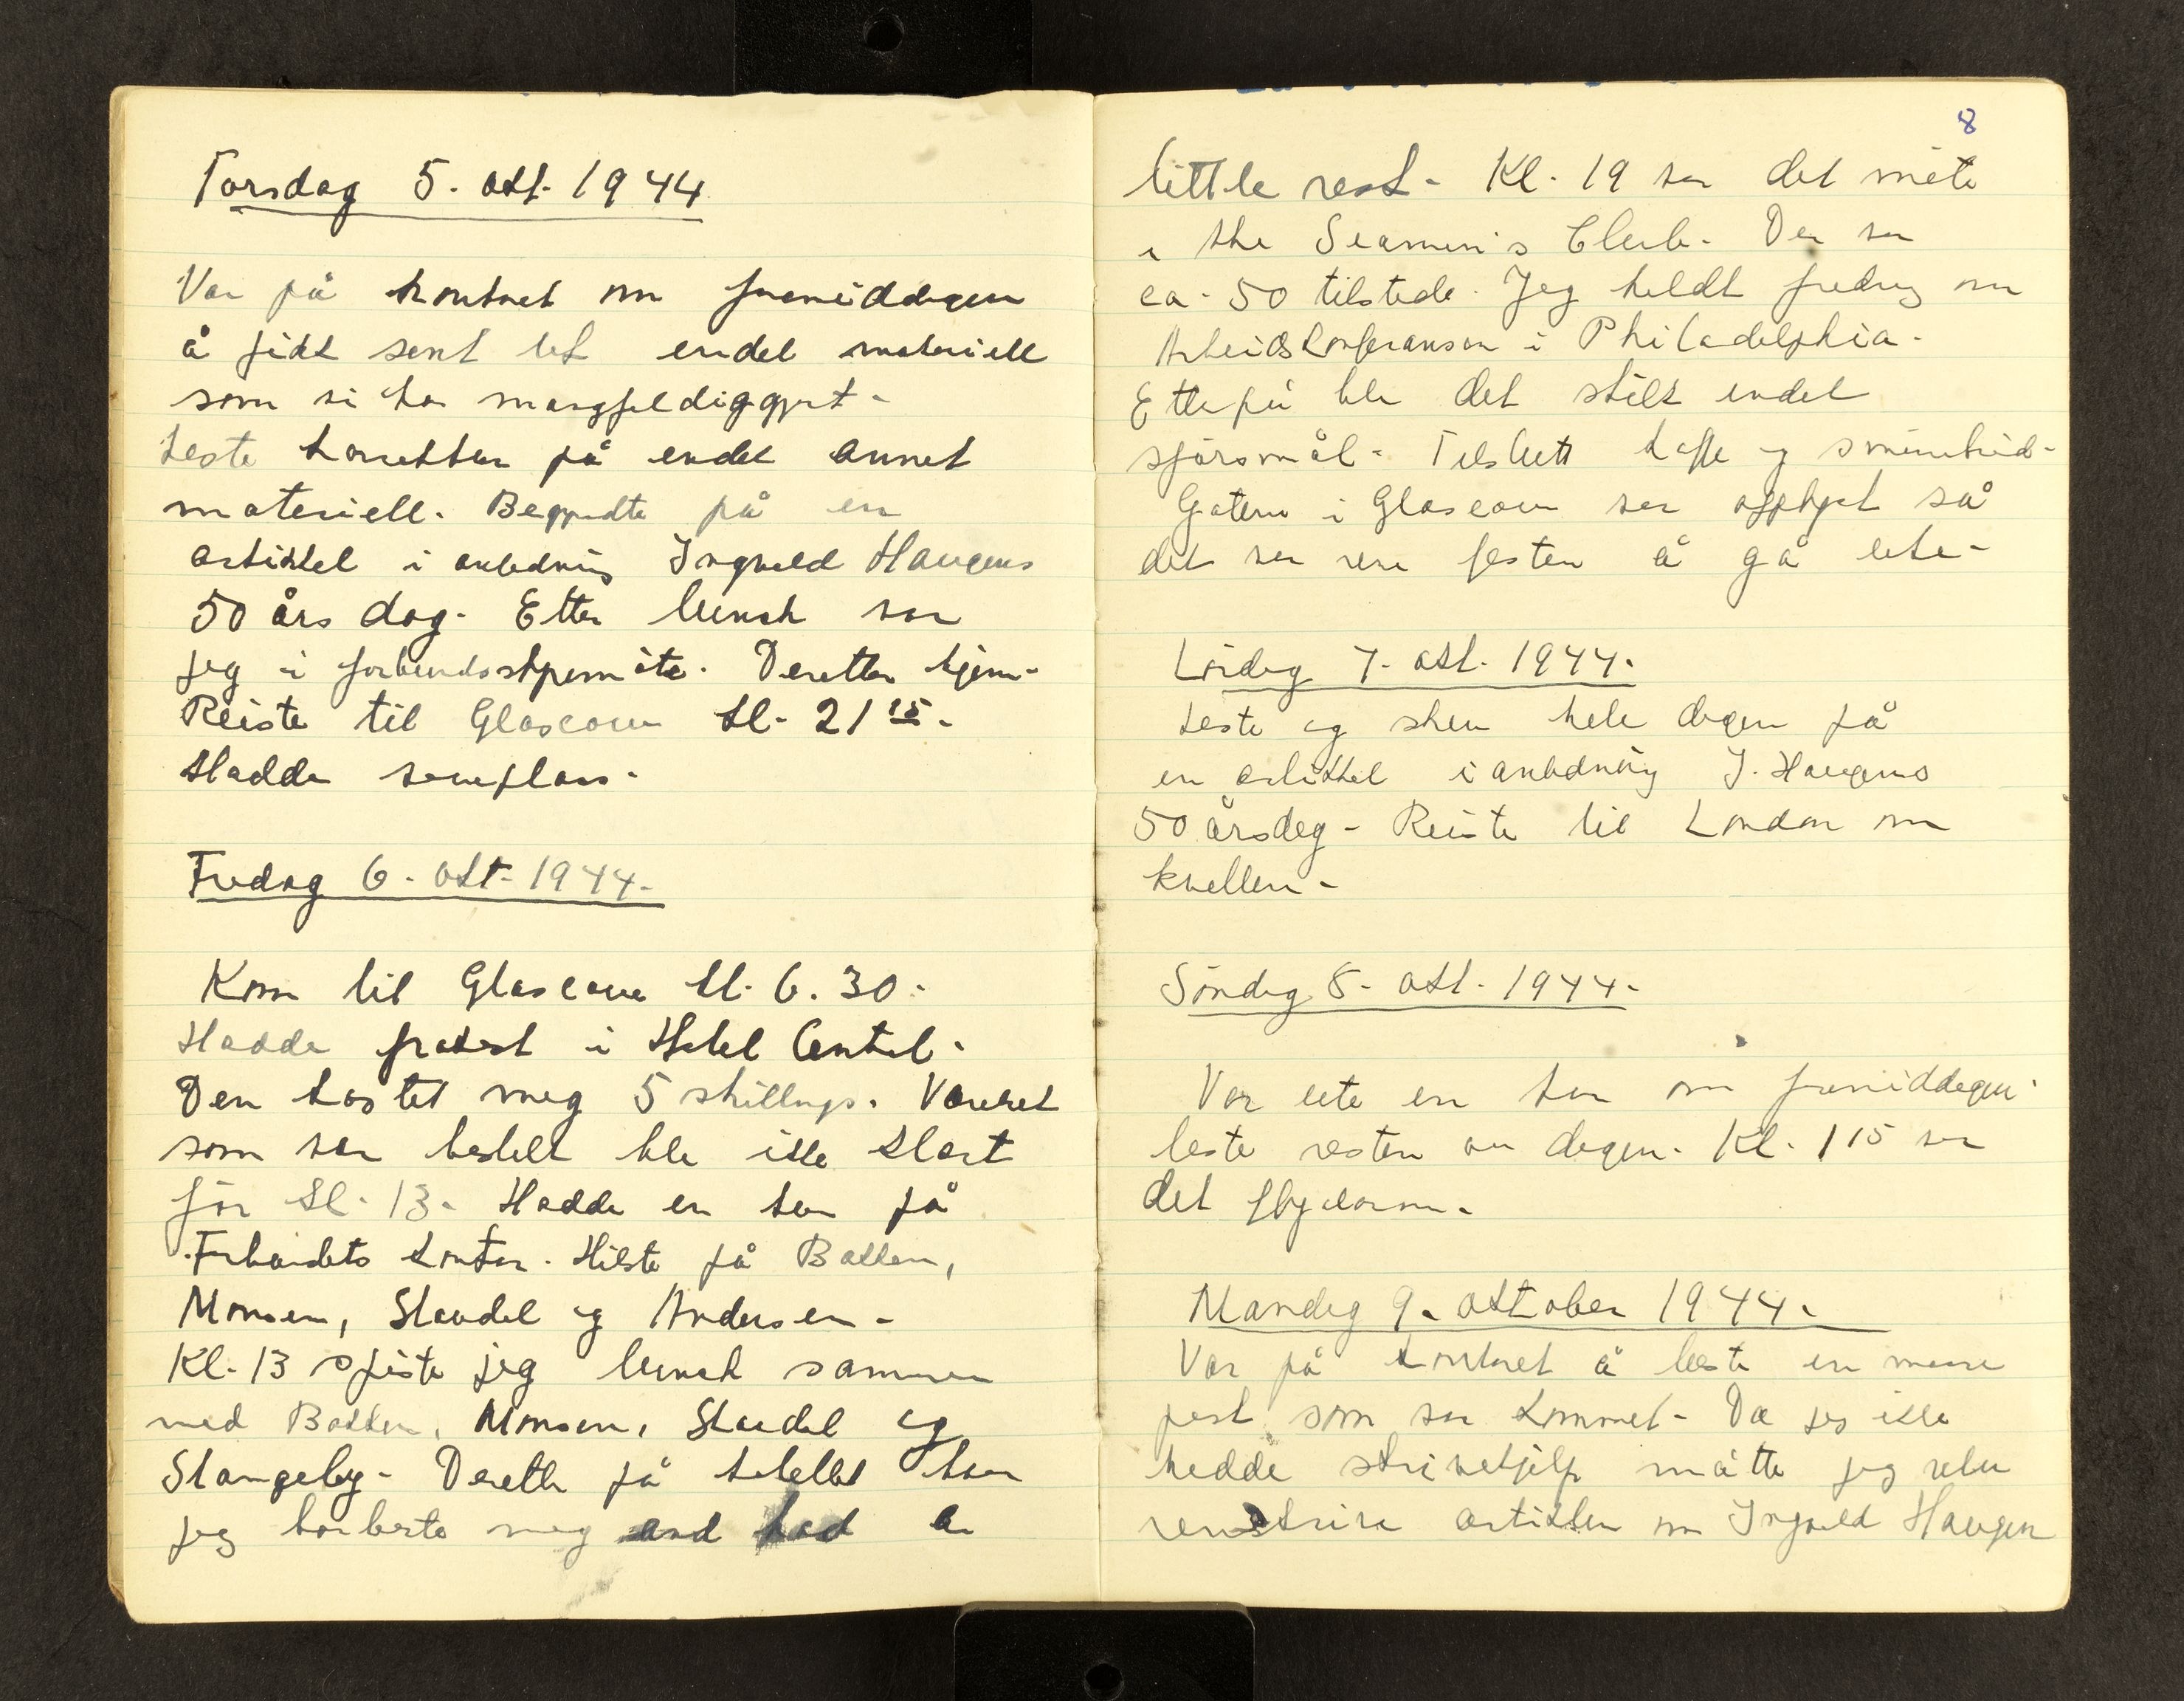 Torsdag 5. okt. 1944
Var på kontoret om formiddagen
å fikk sent ut endel materiell
som vi har mangfoldiggjort.
Leste korrektur på endel annet
materiell. Begyndte på en
artikkel i anledning Ingvald Haugens
50 års dag. Etter lunch var
jeg i forbundsstyremøte. Deretter hjem.
Reiste til Glascow kl. 21 15.
Hadde soveplass.
Fredag 6. okt. 1944.
Kom til Glascow kl. 6.30.
Hadde frokost i Hotel Central.
Den kostet meg 5 shillings. Værelset
som var bestelt ble ikke klart
før kl. 13. Hadde en tur på
Forbundets kontor. Hilste på Bakken,
Monsen, Skaudal og Andersen.
Kl. 13 spiste jeg lunch sammen
med Bakken, Monsen, Skaudal og
Slangeby. Deretter på hotellet hvor
jeg barberte meg and had a
8
little rest. Kl. 19 var det møte
i the Seamen's Club. Der var
ca. 50 tilstede. Jeg holdt foredrag om
Arbeidskonferansen i Philadelphia.
Etterpå ble det stilt endel
spørsmål. Tilslutt kaffe og smørrebrød.
Gatene i Glascow var opplyst så
det var rene festen å gå ute.
Lørdag 7. okt. 1944.
Leste og skrev hele dagen på
en artikkel i anledning I. Haugens
50 årsdag. Reiste til London om
kvellen.
Søndag 8. okt. 1944.
Var ute en tur om formiddagen.
leste resten av dagen. Kl. 1 15 var
det flyalarm.
Mandag 9. oktober 1944.
Var på kontoret å leste en masse
post som var kommet. Da jeg ikke
hadde skrivehjelp måtte jeg selv
renskrive artikklen om Ingvald Haugen